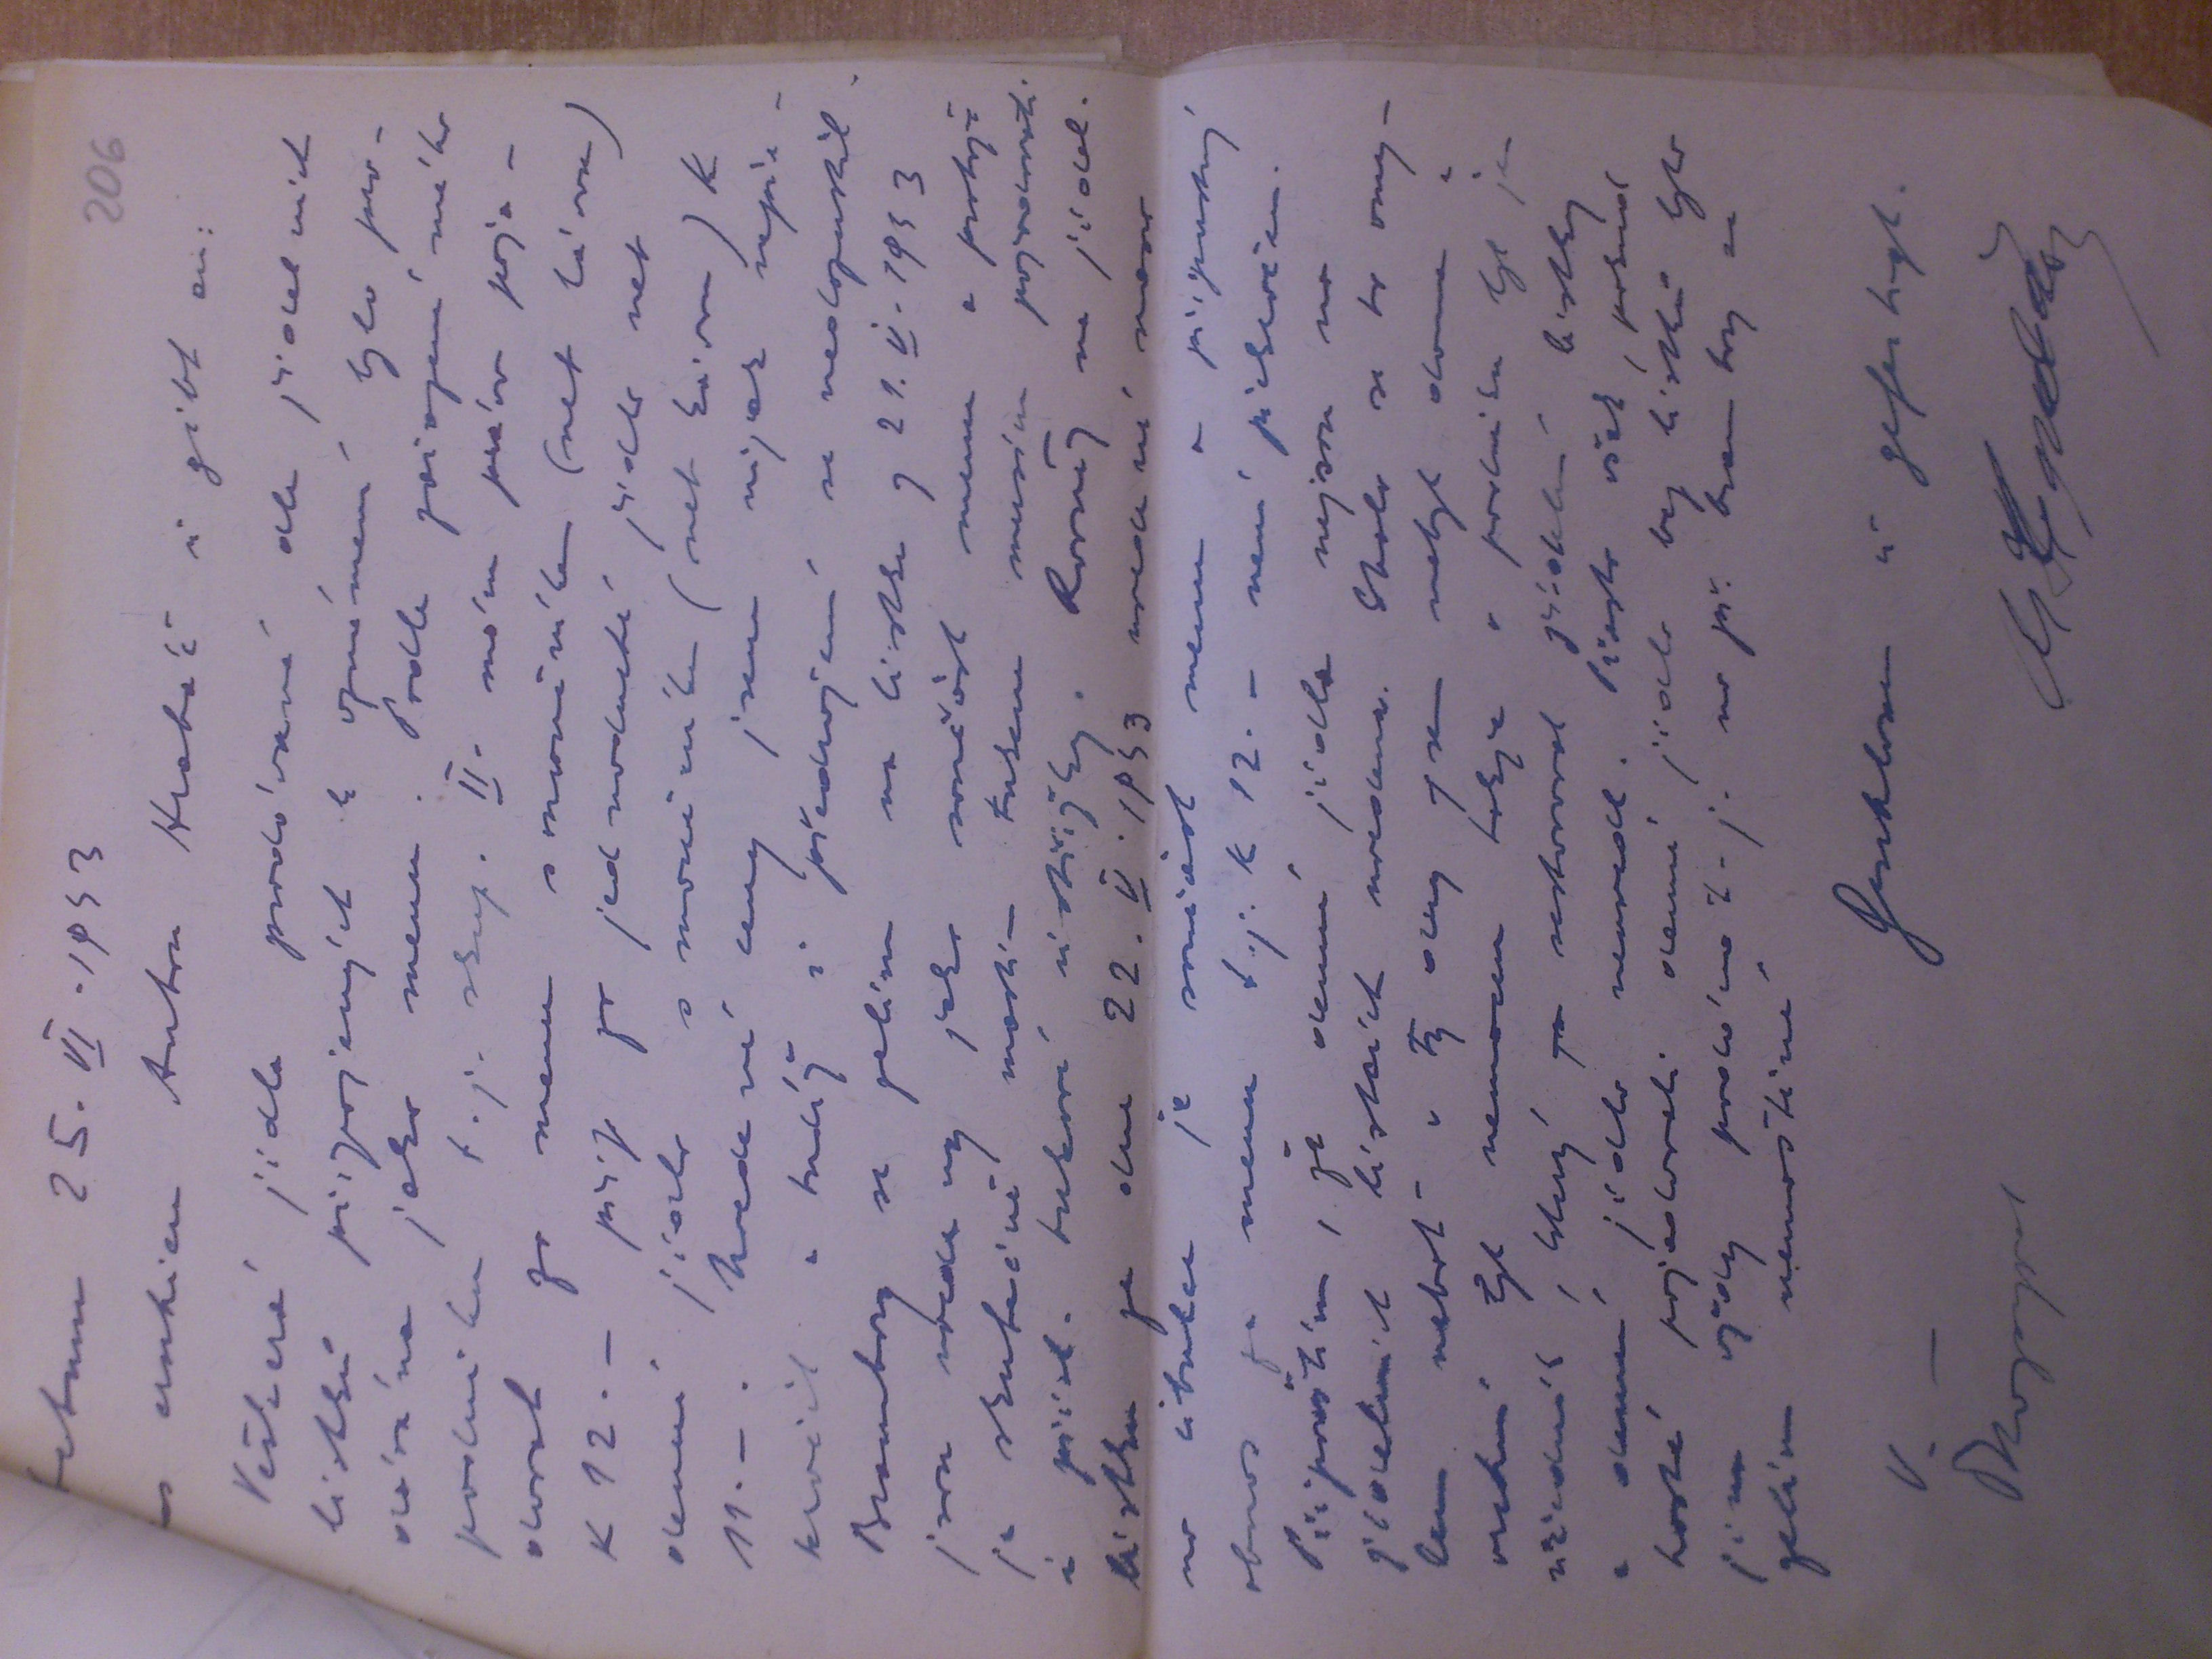 25. VI. 1943
206
Anton Hrabáč u gibt an:
Veškerá jídla prodávaná dle jídelních
lístků připojených k oznámení bylo pro-
dávána jako menu. Podle zařazení mého
podniku t. j. skup. II. mám právo poža-
dovat za menu s moučníkem (neb kávou)
K 12.- příp. za jednoduché jídlo neb
denní jídlo s moučníkem (neb kávou) K
11.-. Uvedené ceny jsem nijak nepře-
kročil a tudíž i předražení se nedopustil.
Brambory se zelím na lístku z 21. V. 1943
jsou uvedeny jako součást menu a protože
je skutečně mastím tukem musím požadovati
i přísl. tukové ústřižky. Rovněž na jídel.
lístku ze dne 22. V. 1943 uvedené maso
na cibulce je součást menu a přípustný
obnos za menu t. j. K 12.- není překročen.
Připouštím, že denní jídla nejsou na
jídelních lístcích uvedena. Stalo se to omy-
lem neboť v ty dny jsem nebyl doma a
vrchní byl nemocen takže v podniku byl jen
úředník, který sestavoval jídelní lístky
a denní jídlo neuvedl. Přesto však, pokud
hosté požadovali denní jídlo bez lístků bylo
jim vždy podáno t. j. na př. brambory se
zelím nemaštěné
Geschlossen u gefertigt.
V.